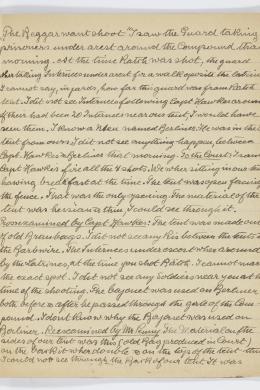 The Beggar wont shoot" I saw the Guard taking
prisoners under arest around the Compound that
morning. At the time Rath was shot, the guard
was taking Internees under arest for a walk oposite the latrine
I cannot say, in yards, how far this guard was from Rath
tent. I did not see Internees following Capt Hawkes around
if there had been 20 Internees near our tent, I would have
seen them. I know a man named Berliner. He was in the
tent from ours. I did not see anything happen between
Capt. Hawkes & Berliner that morning. To the Court: I saw
Capt Hawkes fire all the 4 shots. I & other sitting in our tent
having breakfast at the time. The tent was open facing
the fence. That was the only opening. The material of the
tent was hessian & thin, I could see through it.
by Capt Hawkes: The tent was made out of
Old Bran bags. I did not see any Riv between the tents &
the Barbwire. The Internees under escort when around
by the Latrines, at the time you shot Rath. I cannot mark
the exact spot. I did not see any soldiers near you at the
time of the shooting. The bayonet was used on Berliner
both before & after he passed through the gate of the Com-
pound. I dont know why the Bayonet was used on
Berliner. Reexamined by Mr The Material on the
sides of our tent was thin (old Bag produced in Court)
on the back it was double on the top of the tent
I could not see through the Back of our tent. It was